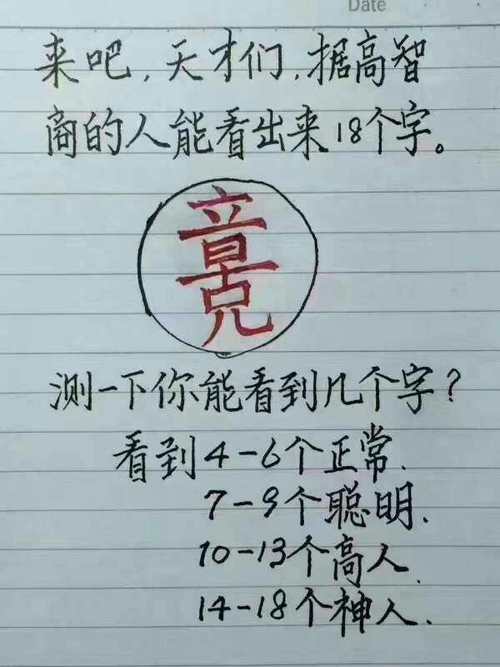 Date
来吧，天才们，据高智
商的人能看出来18个字。
测一下你能看到几个字？
看到4-6个正常.
7-9个聪明.
10-13个高人.
14-18个神人.